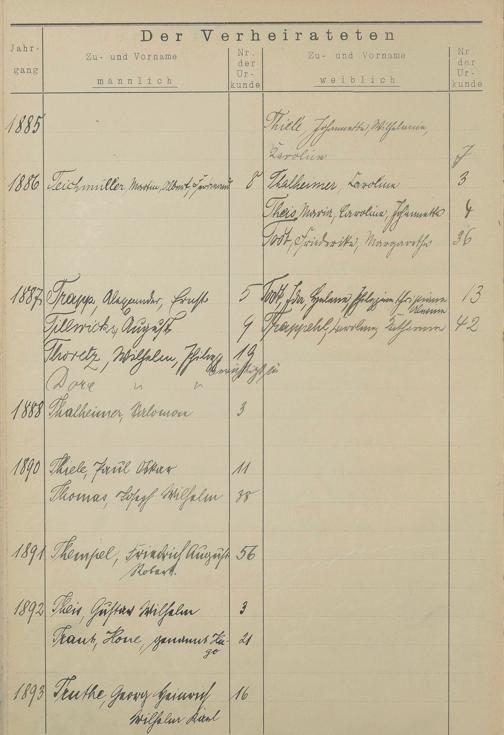 Der Verheirateten
Jahr-
gang
Zu- und Vorname
männlich
Nr.
der
Ur-
kunde
Zu- und Vorname
weiblich
Nr.
der
Ur-
kunde
1885 Thiele, Johannette, Wilhelmine,
Karoline 7
1886 Teichmüller, Martin, Albert, Ferdinand 8 Thalheimer, Karoline 3
Theis, Maria, Caroline, Johannette 4
Todt, Friederike, Margarethe 36
1887 Trapp, Alexander, Ernst 5 Todt, Ida, Helene 13
August 9 Karoline, Katharina 42
Wilhelm, Philipp 19
" "
1888 Thalheimer, Salomon 3
1890 Thiele, Paul Oskar 11
Thomas, Joseph Wilhelm 38
1891 Friedrich August 56
Robert.
1892 Theis, Gustav Wilhelm 3
genannt Hu- 21
go
1893 Georg Heinrich 16
Wilhelm Karl